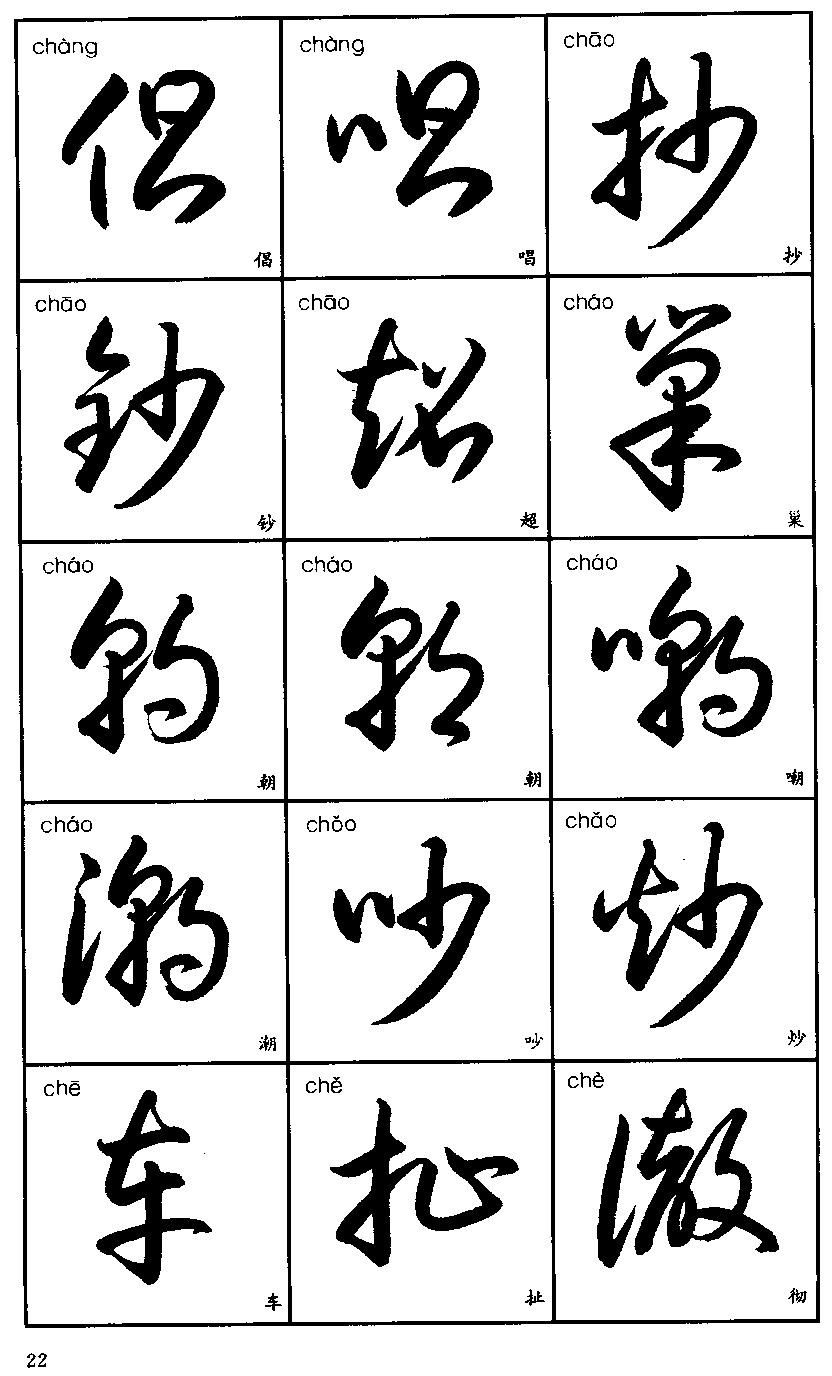 chàng chàng chāo
倡 唱 抄
chāo chāo cháo
钞 超 巢
cháo cháo cháo
朝 朝 嘲
cháo chǒo chǎo
潮 吵 炒
chē chě chè
车 扯 彻
22